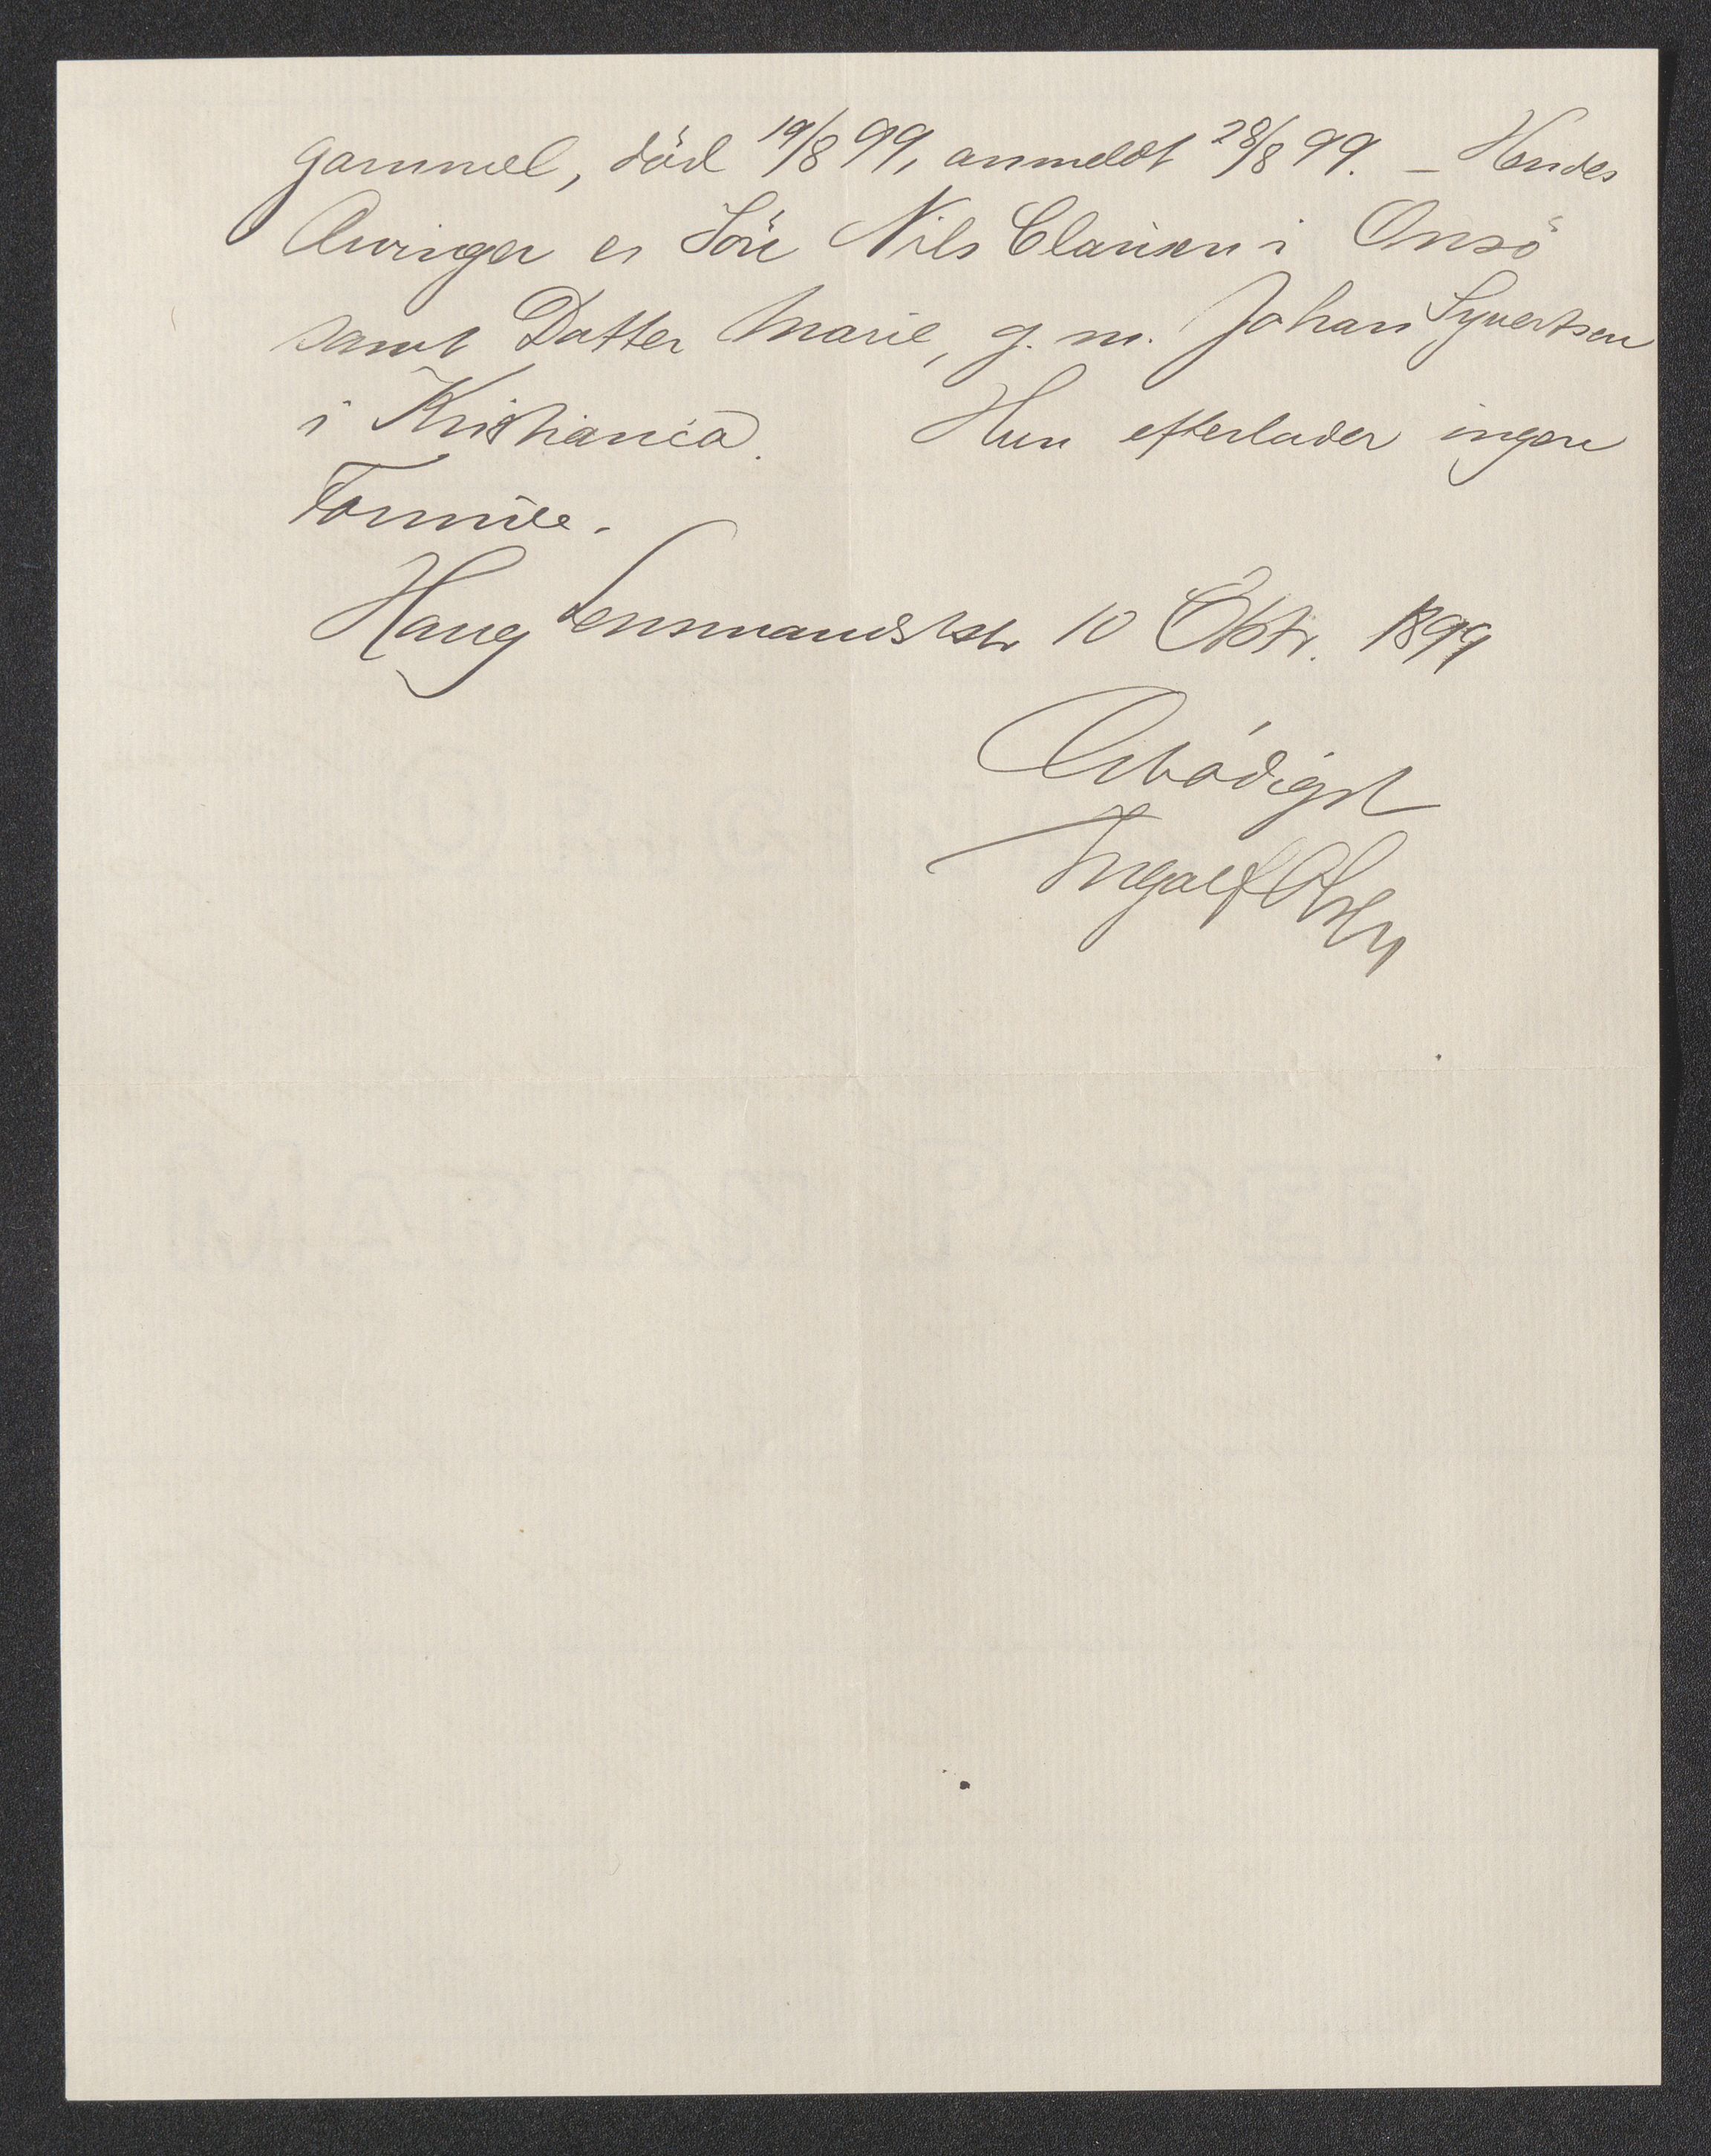 gammel, död 19/8 99, anmeldt 28/8 99. – Hendes
Arvinger er Sön Nils Clausen i Onsö
samt Datter Marie, g. m. Johan Syvertsen
i Kristiania. Hun efterlader ingen
Formue.
Haug Lensmandsktr 10 Oktr. 1899
Ærbödigst
Ingolf